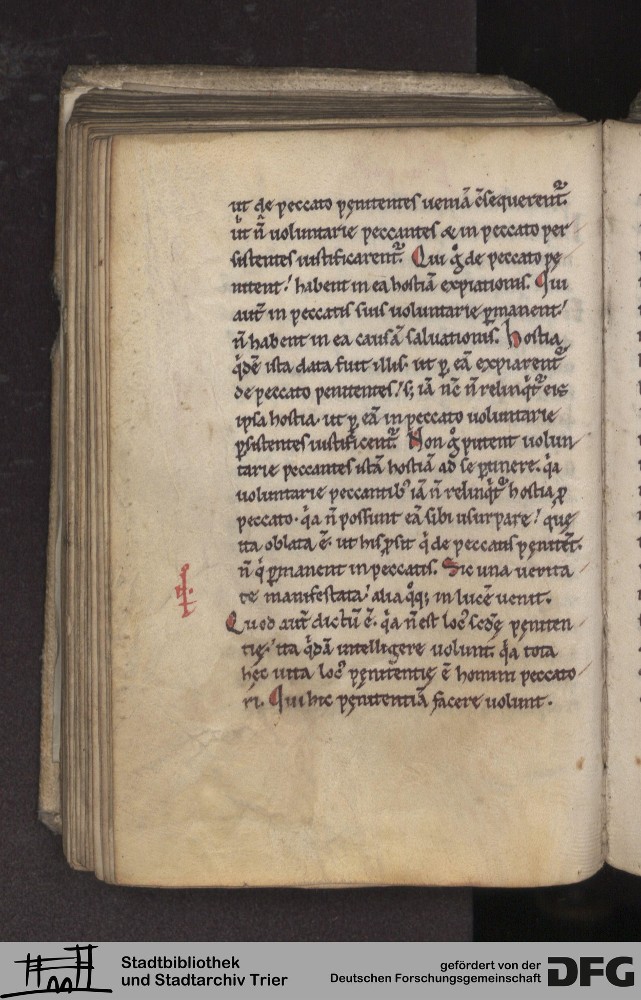 ut de peccato pęnitentes ueniā c̄sequerent᷑.
ut n̄ uoluntarie peccantes & in peccato per
sistentes iustificarent᷑. Qui gͦ de peccato pę
nitent! habent in ea hostiā expiationis. Qui
aut̄ in peccatis suis uoluntarie ꝑmanent!
n̄ habent in ea causā saluationis. Hostia
q̇dē ista data fuit illis. ut ꝑ eā expiarent᷑
de peccato penitentes! s; iā nc̄ n̄ relinq̇t᷑ eis
ipsa hostia. ut ꝑ eā in peccato uoluntarie
ꝑsistentes iustificent᷑. Non gͦ putent uolun
tarie peccantes istā hostiā ad se ꝑtinere. qͣa
uoluntarie peccantibꝰ iā n̄ relinq̇t᷑ hostia ꝓ
peccato. qͣa n̄ possunt eā sibi usurpare! quę
ita oblata ē. ut his ꝓsit q̇ de peccatis pęnitēt.
n̄ q̇ ꝑmanent in peccatis. Sic una uerita
te manifestata! alia qͦq; in lucē uenit.
Quod aut̄ dictū ē. qͣa n̄ est locꝰ scd̄ę pęniten
tię! ita q̇dā intelligere uolunt. qͣa tota
hęc uita locꝰ pęnitentię ē homini peccato
ri. Qui hic pęnitentiā facere uolunt.
Stadtbibliothek
und Stadtarchiv Trier
gefördert von der
Deutschen Forschungsgemeinschaft
DFG